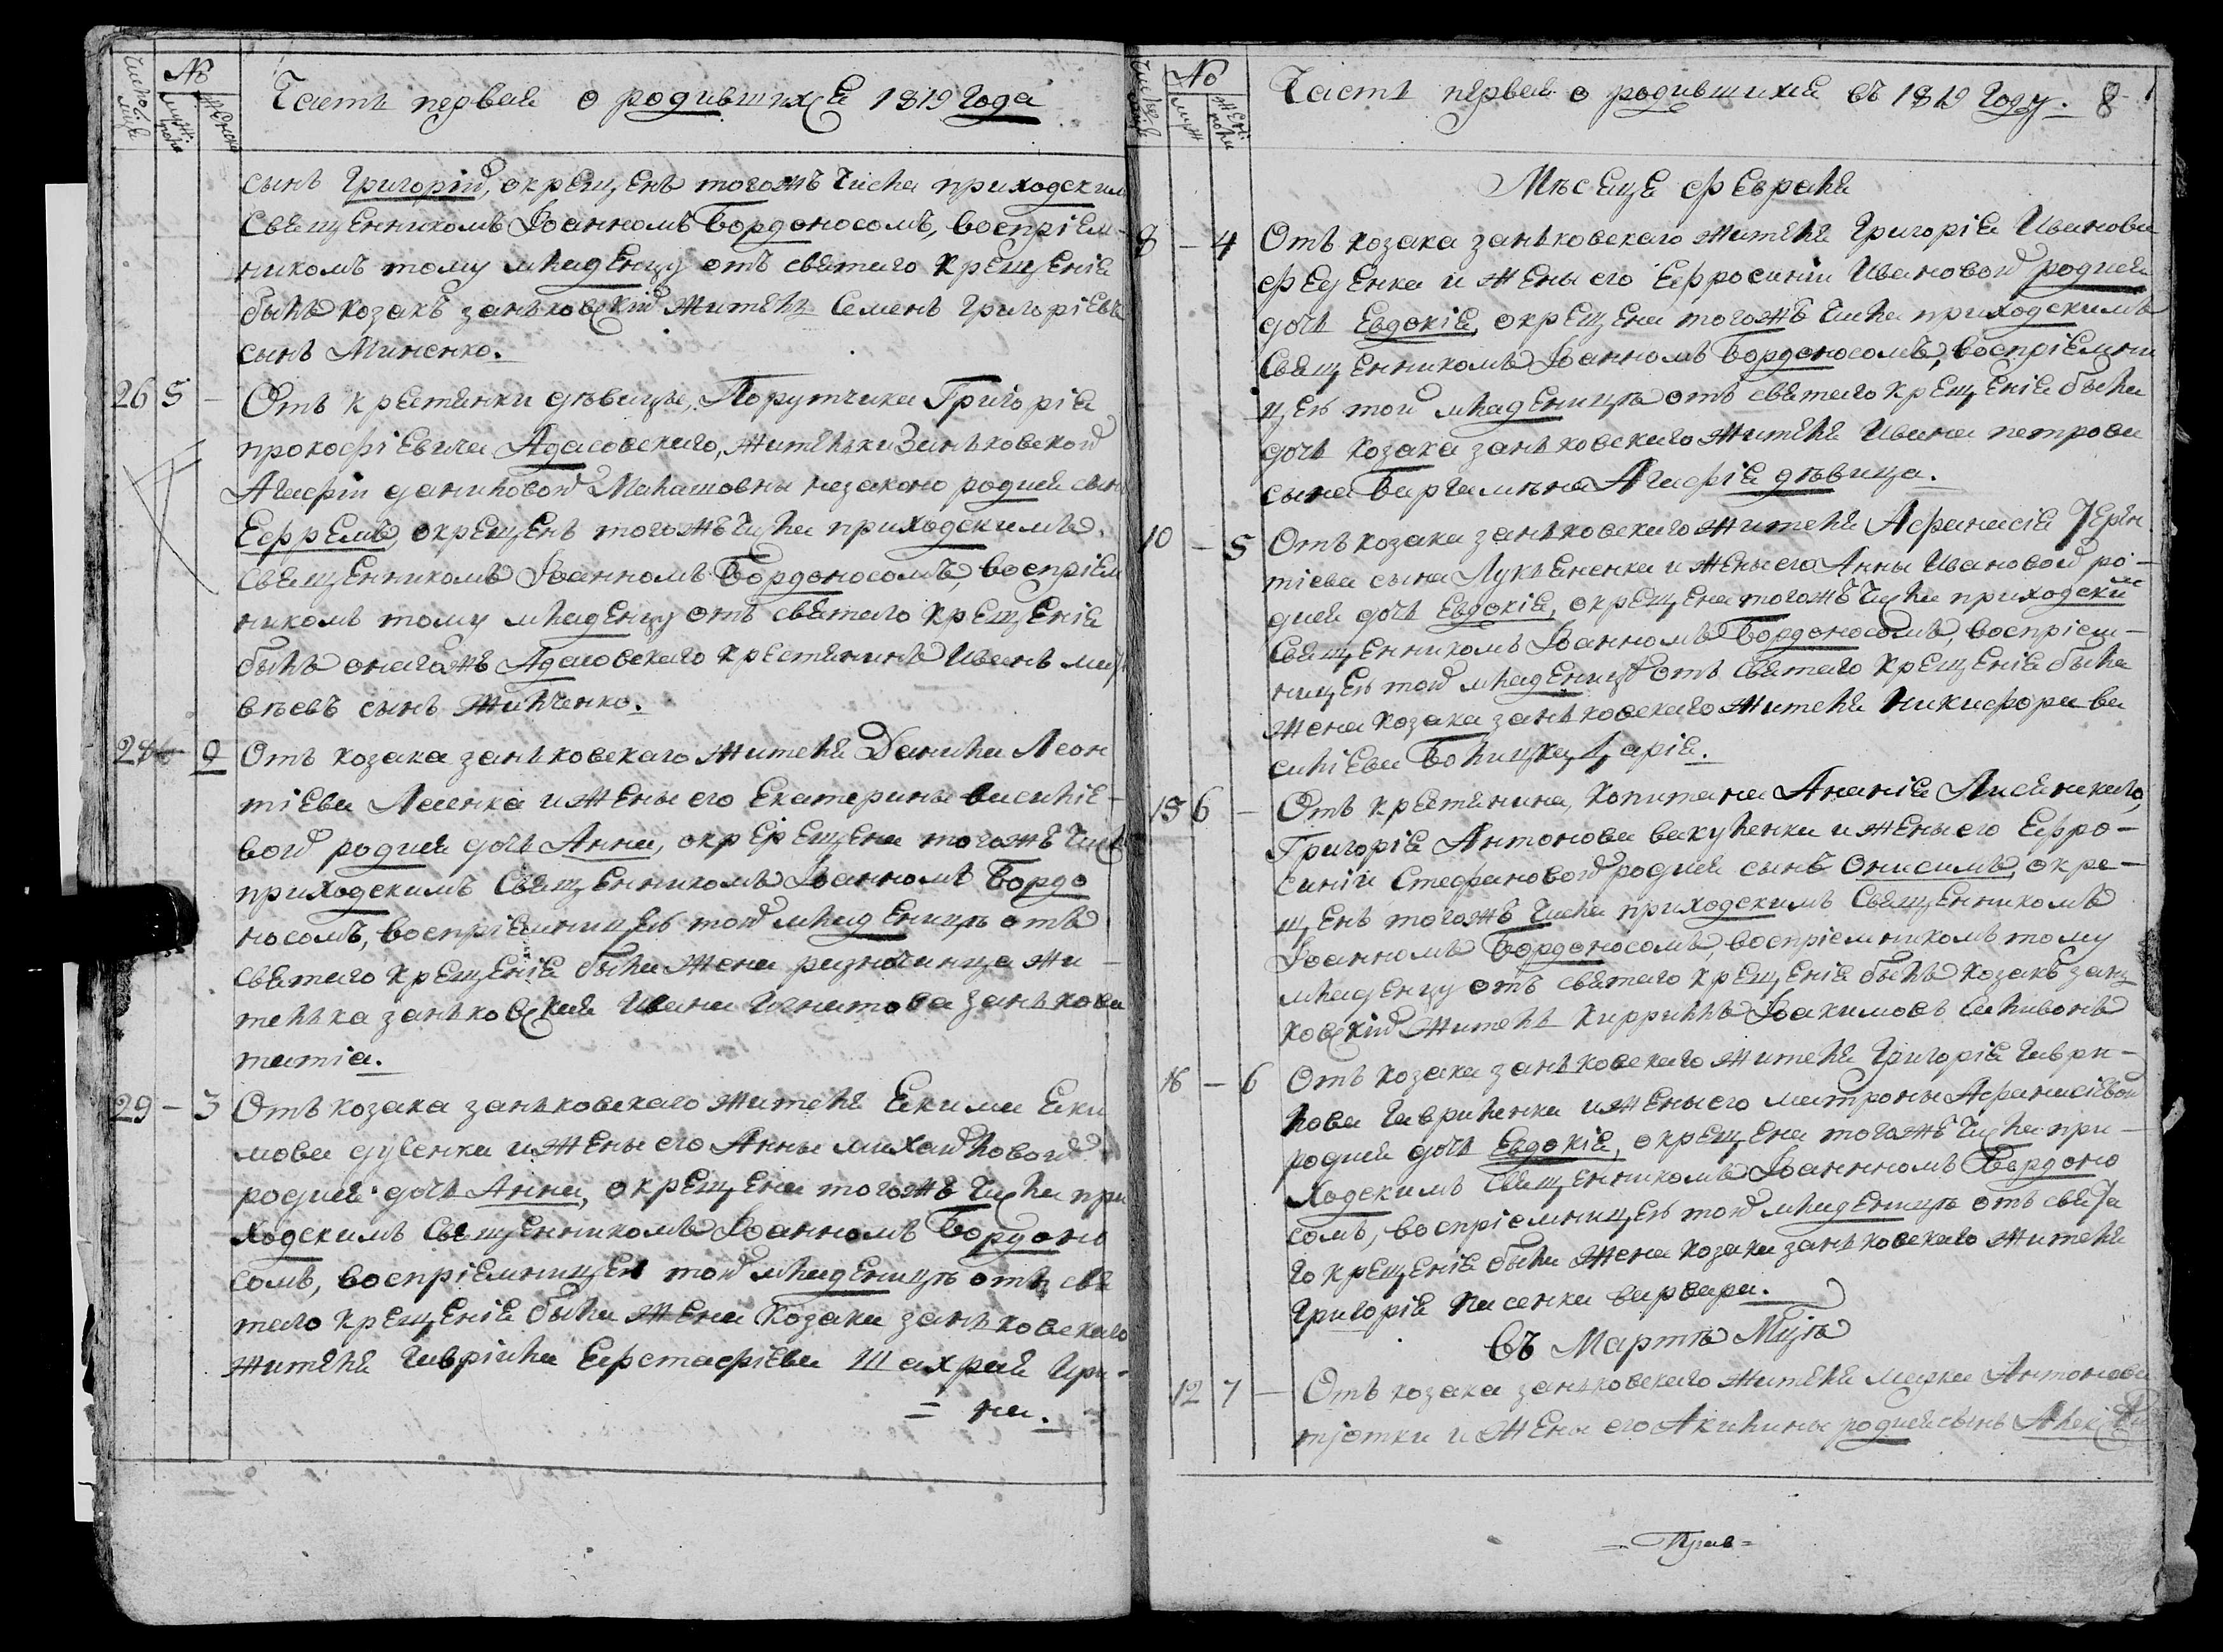 Число и м-ца № муж. пола женска
Часть первая о родившихся 1819 Года
сынъ Григорій, окрещенъ тогожъ числа приходским
Священникомъ Іоанномъ Бордоносомъ, воспріем-
никомъ тому младенцу отъ святаго крещенія
былъ козакъ заньковскій житель Семенъ Григоріевъ
сынъ Миненко.
26 5 – Отъ крестянки дѣвицы, Порутчика Григорія
прокофіевича Адасовского, жительки Заньковской
Агафіи даниловой Малашовны незаконо родися сынъ
Ефремъ, окрещенъ тогожъ числа приходскимъ
Священникомъ Іоанномъ Бордоносомъ, воспріем
никомъ тому младенцу отъ святаго крещенія
былъ оногожъ Адасовского крестянинъ Иванъ мат
вѣевъ сынъ Жилченко.
28 – 2 Отъ козака заньковскаго жителя Данила Леон
тіева Лесенка и жены его Екатерины василіе-
вой родися дочь Анна, окререщена тогожъ числ
приходскимъ Священникомъ Іоанномъ Бордо
носомъ, воспріемницею той младеницѣ отъ
святаго крещенія была жена разночинца жи-
телька заньковская Ивана Игнатова занькова
татіа.
29 – 3 Отъ козака заньковскаго жителя Екима Еки
мова дученка и жены его Анны михайловой
родися дочь Анна, окрещена тогожъ числа при
ходскимъ Священникомъ Іоанномъ Бордоно
сомъ, воспріемницею той младеницѣ отъ свя
таго крещенія была жена козака заньковскаго
жителя Гавріила Ефстафіева Шахрая Ири-
= на.
Число и м-ца № муж женс: пола
Часть первая о родившихся въ 1819 Году. 8
Мѣсеця февраля
8 – 4 Отъ козака заньковскаго жителя Григорія Иванова
федченка и жены его Ефросиніи Ивановой родися
дочь Евдокія, окрещена тогожъ числа приходскимъ
Священникомъ Іоанномъ Бордоносомъ, воспріемни
цею той младеницѣ отъ святаго крещенія была
дочь козака заньковскаго жителя Ивана петрова
сына Варгамѣна Агафія дѣвица.
10 – 5 Отъ козака заньковскаго жителя Афанасія Терен
тіева сына Лукъяненка и жены его Анны Ивановой ро-
дися дочь Евдокія, окрещена тогожъ числа приходским
Священникомъ Іоанномъ Бордоносомъ, воспріем-
ницею той младеницѣ отъ святаго крещенія была
жена козака заньковскаго жителя никифора ва
силіева Болицка, Дарія.
15 6 – Отъ крестянина, копитана Ананія Лисянского,
Григорія Антонова вакуленка и жены его Ефро-
синіи Стефановой родися сынъ Онисимъ, окре-
щенъ тогожъ числа приходскимъ Священникомъ
Іоанномъ Бордоносомъ, воспріемникомъ тому
младенцу отъ святаго крещенія былъ козакъ зань
ковскій житель Кириллъ Іоакимовъ Саливонъ
16 – 6 Отъ козака заньковскаго жителя Григорія Гаври-
лова Гавриленка и жены его матроны Афанасіевой
родися дочь Евдокія, окрещена тогожъ числа при-
ходскимъ Священникомъ Іоанномъ Бордоно
сомъ, воспріемницею той младеницѣ отъ свята
го крещенія была жена козака заньковскаго жителя
Григорія Пасенка варвара.
Въ Мартѣ Мцѣ
12 7 – Отъ козака заньковскаго жителя марка Антонова
тютки и жены его Акилины родися сынъ Алексѣй
= Прав =